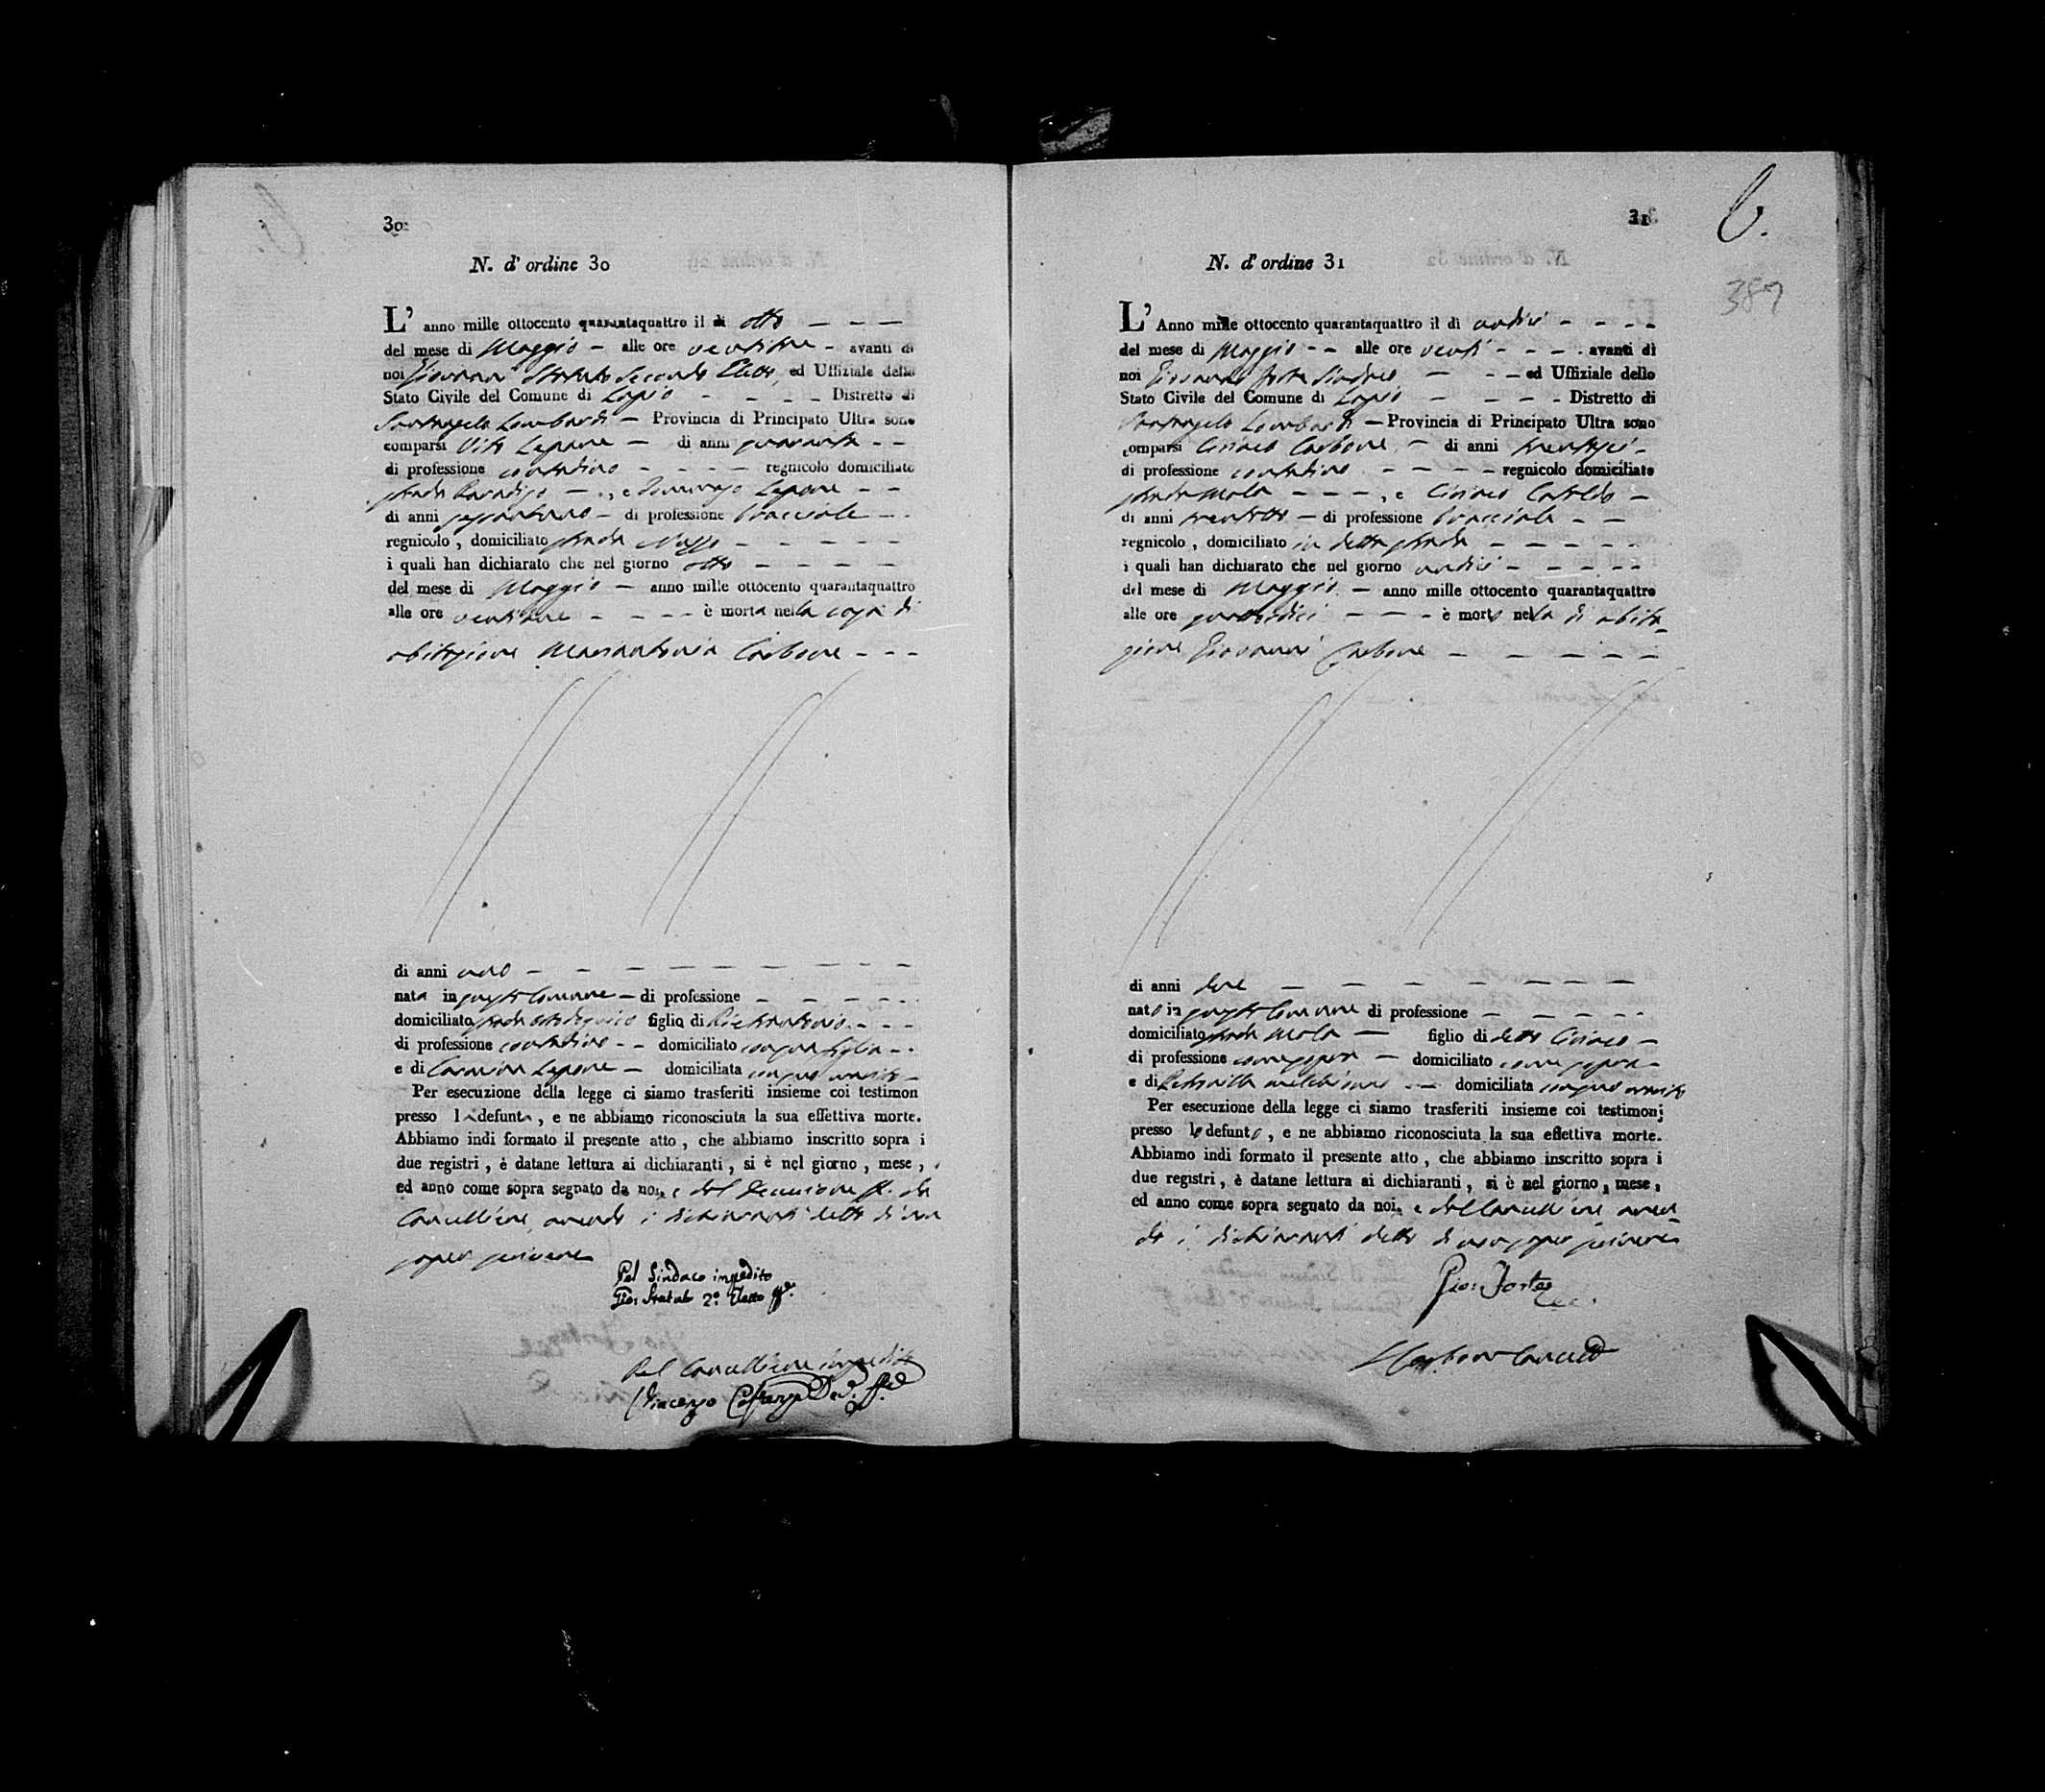 30
N. d' ordine 30
L' anno mille ottocento quarantaquattro il di otto
del mese di Maggio alle ore ventidue avanti di
noi Giovanni Secondo Eletto, ed Uffiziale dello
Stato Civile del Comune di Lapio Distretto di
Santangelo Lombardi Provincia di Principato Ultra sono
comparsi Vito Lepore di anni quaranta
di professione contadino regnicolo domiciliato
strada Paradiso, e Lepore
di anni di professione bracciale
regnicolo, domiciliato strada
i quali han dichiarato che nel giorno otto
del mese di Maggio anno mille ottocento quarantaquattro
alle ore è morta nella casa di
abitazione Mariantonia Carbone
di anni uno
nata in questo Comune di professione
domiciliata strada figlia di Pietrantonio
di professione contadino domiciliato con sua figlia
e di Carmina Lepore domiciliata con suo marito
Per esecuzione della legge ci siamo trasferiti insieme coi testimon
presso la defunta, e ne abbiamo riconosciuta la sua effettiva morte.
Abbiamo indi formato il presente atto, che abbiamo inscritto sopra i
due registri, è datane lettura ai dichiaranti, si è nel giorno, mese,
ed anno come sopra segnato da noi, e dal Decurione ff. da
Cancelliere, avendo i dichiaranti detto di non
saper scrivere
Pel Sindaco impedito
Gio: 2.º Eletto ff.
Pel Cancelliere impedito
Vincenzo
31
6.
389
N. d' ordine 31
L' Anno mille ottocento quarantaquattro il di undici
del mese di Maggio alle ore venti avanti di
noi Giovanni Forte Sindaco ed Uffiziale dello
Stato Civile del Comune di Lapio Distretto di
Santangelo Lombardi Provincia di Principato Ultra sono
comparsi Ciriaco Carbone di anni trentasei
di professione contadino regnicolo domiciliato
strada Mola, e Ciriaco Cataldo
di anni trentotto di professione bracciale
regnicolo, domiciliato in detta strada
i quali han dichiarato che nel giorno undici
del mese di Maggio anno mille ottocento quarantaquattro
alle ore quattordici è morto nella di abita
zione Giovanni Carbone
di anni due
nato in questo Comune di professione
domiciliato strada Mola figlio di detto Ciriaco
di professione come sopra domiciliato come sopra
e di domiciliata con suo marito
Per esecuzione della legge ci siamo trasferiti insieme coi testimonj
presso lo defunto, e ne abbiamo riconosciuta la sua effettiva morte.
Abbiamo indi formato il presente atto, che abbiamo inscritto sopra i
due registri, è datane lettura ai dichiaranti, si è nel giorno, mese,
ed anno come sopra segnato da noi, e dal Cancelliere aven
do i dichiaranti detto di non saper scrivere
Gio: Forte
Carbone